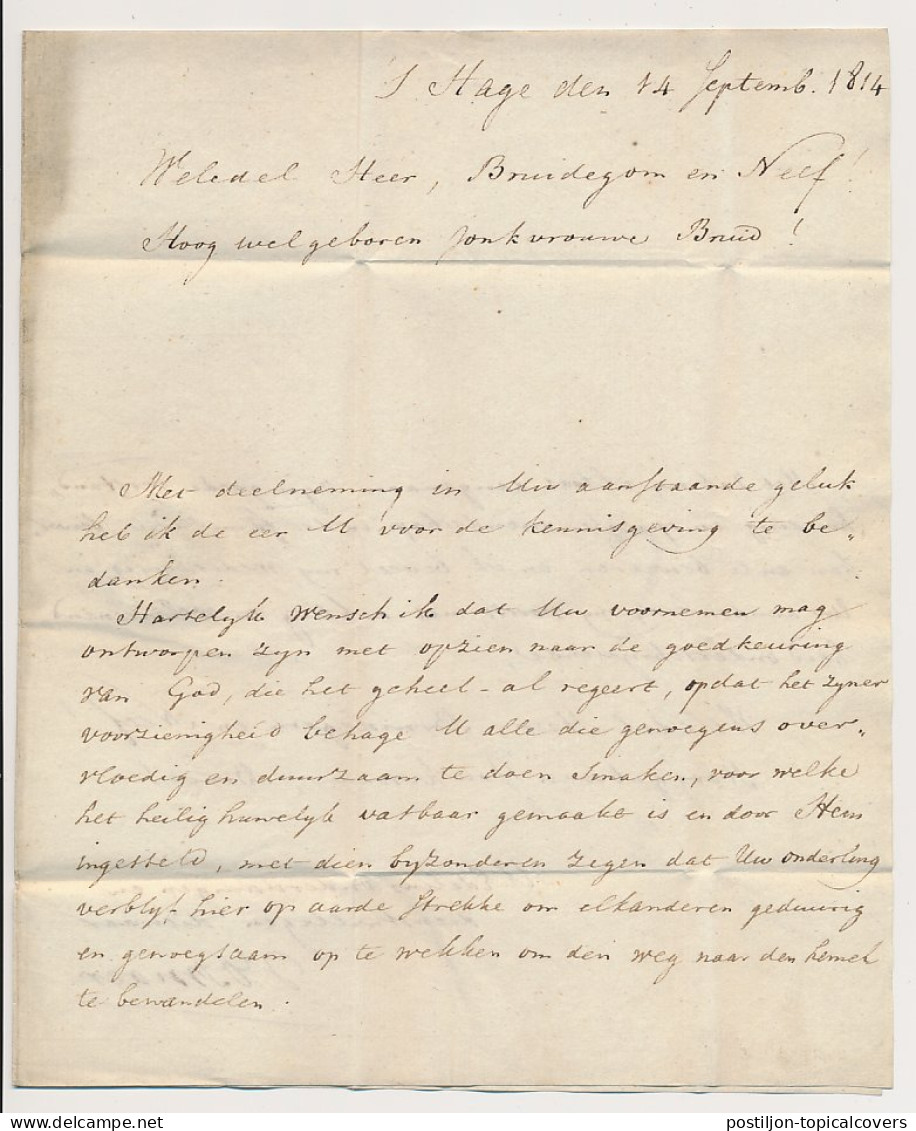 'S Hage den 14 Septemb. 1814
Weledel Heer, Bruidegom en Neef!
Hoog welgeboren Jonkvrouwe Bruid!
Met deelneming in Uw aanstaande geluk
heb ik de eer U voor de kennisgeving te be„
danken.
Hartelyk wensch ik dat Uw voornemen mag
ontworpen zyn met opzien naar de goedkeuring
van God, die het geheel-al regeert, opdat het zyner
voorzienigheid behage U alle die genoegens over„
vloedig en duurzaam te doen smaken, voor welke
het heilig huwelyk vatbaar gemaakt is en door Hem
ingesteld, met dien byzonderen zegen dat Uw onderling
verblyf hier op aarde strekke om elkanderen geduurig
en genoegsaam op te wekken om den weg naar den hemel
te bewandelen.
postiljon-topicalcovers